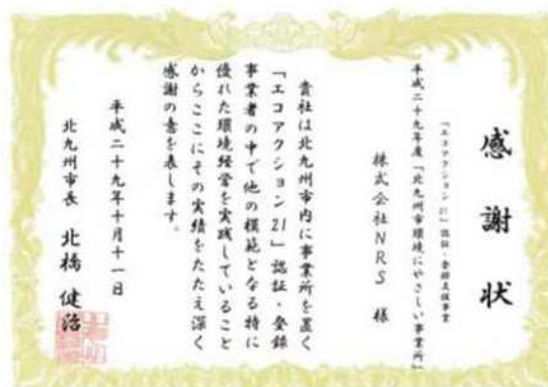 感謝状
「エコアクション21」認証・登録支援事業
平成二十九年度「北九州市環境にやさしい事業所」
株式会社NRS 様
貴社は北九州市内に事業所を置く
「エコアクション21」認証・登録
事業者の中で他の模範となる特に
優れた環境経営を実践していること
からここにその実績をたたえ深く
感謝の意を表します。
平成二十九年十月十一日
北九州市長 北橋 健治